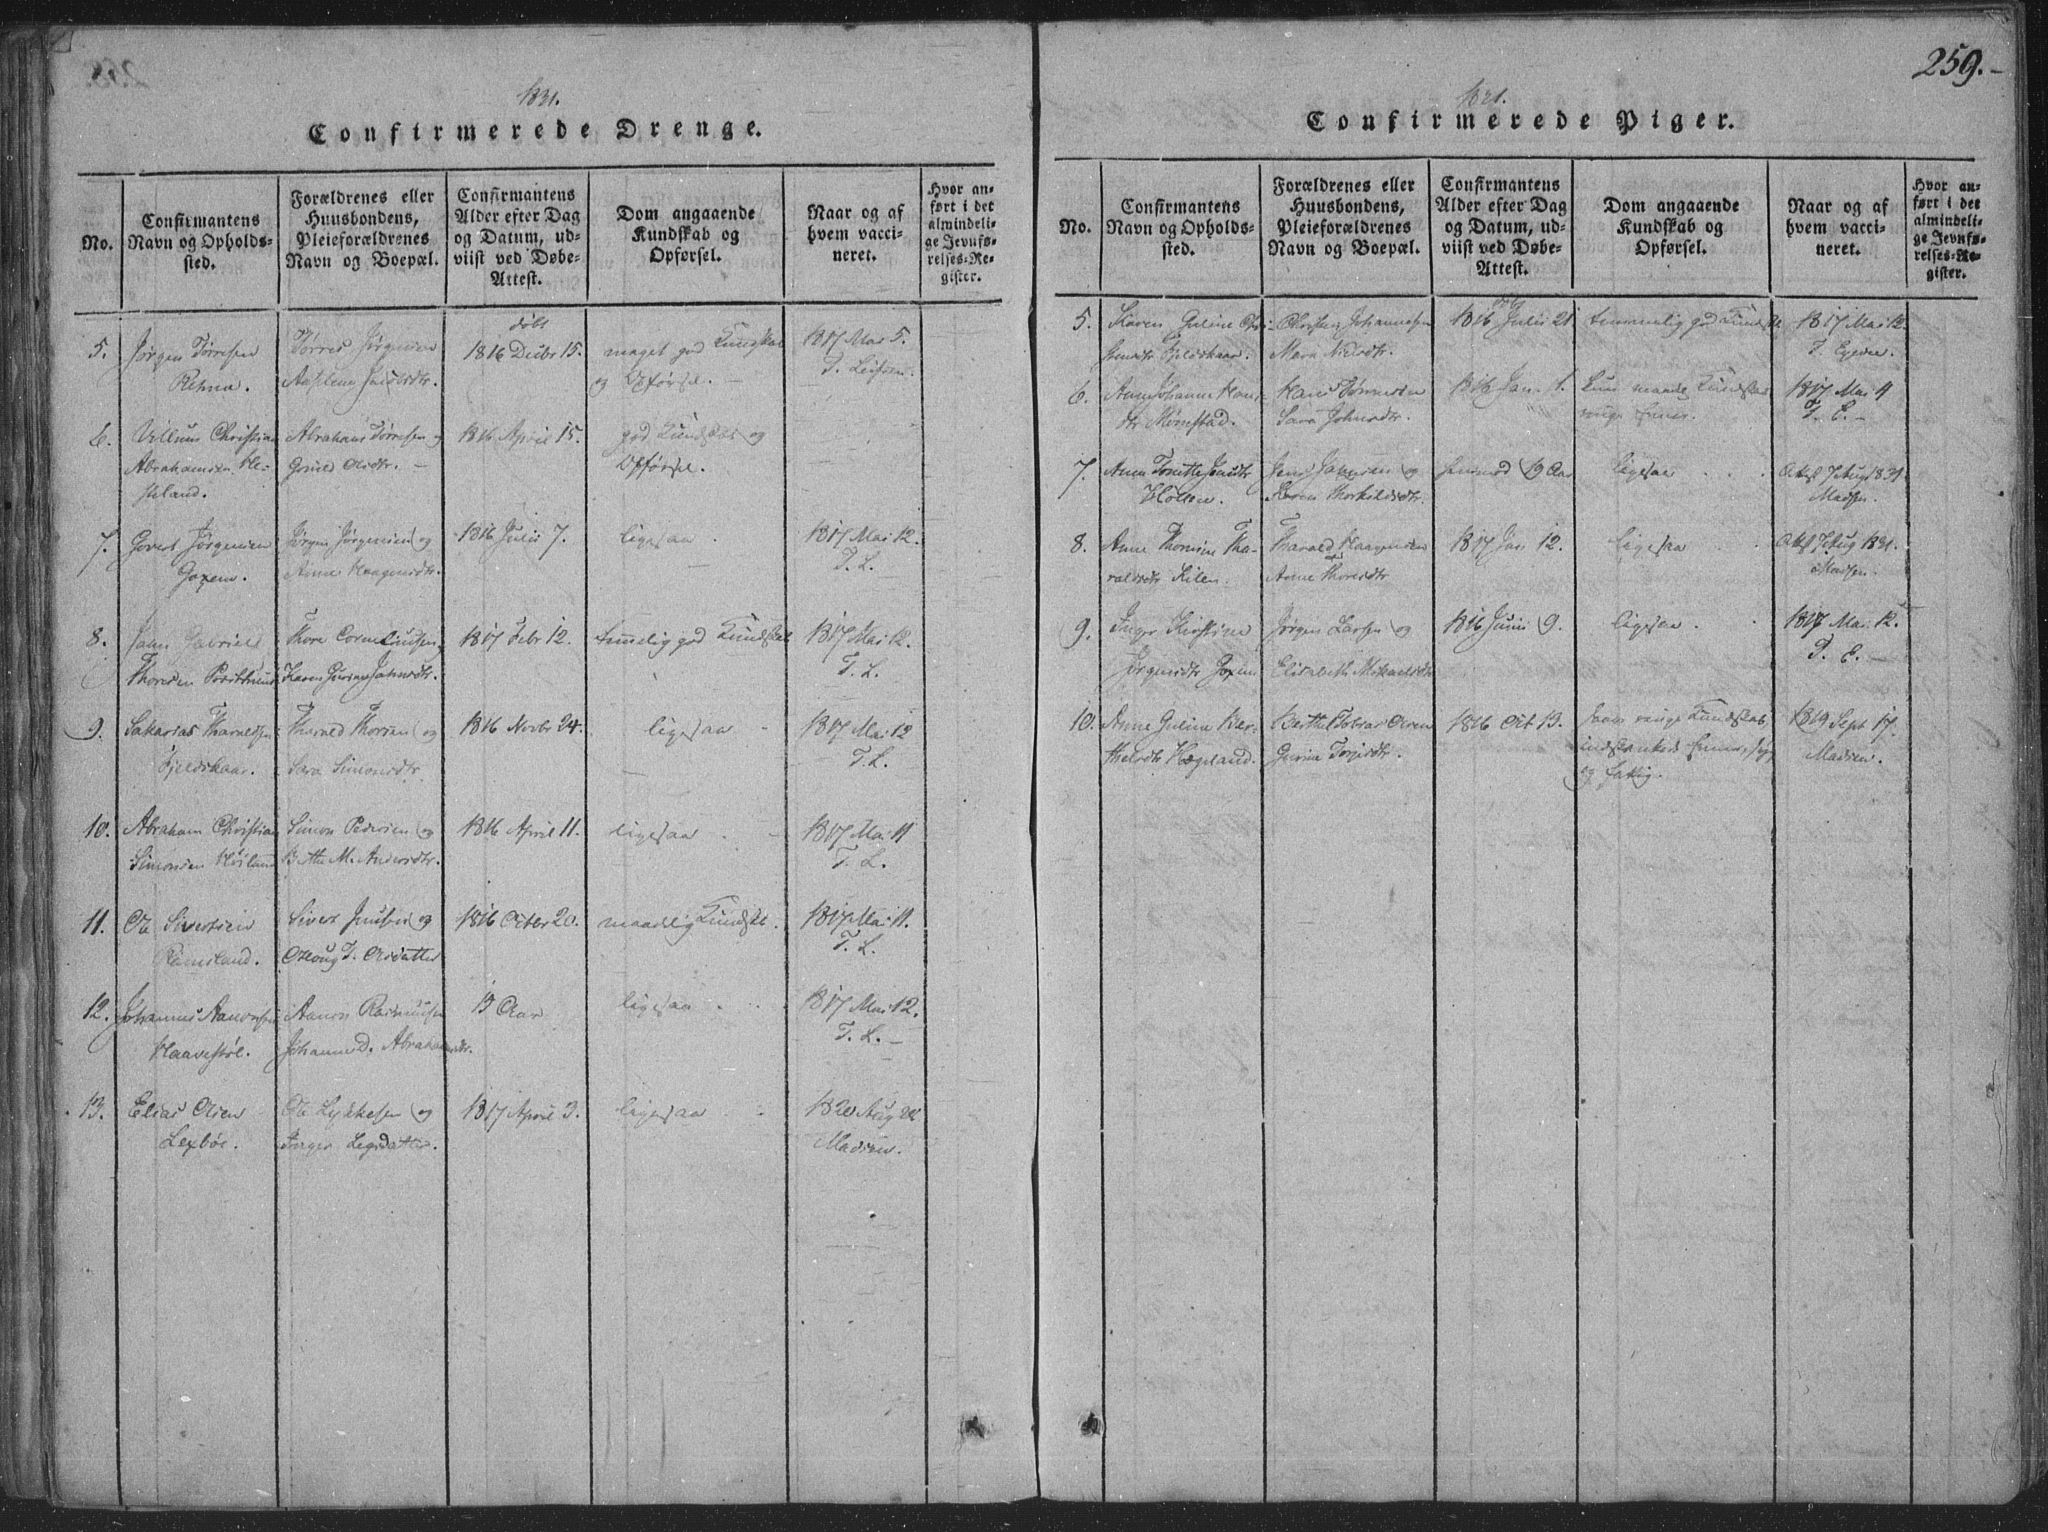 259.
1831.
Confirmerede Drenge.
No.
Confirmantens
Navn og Opholds-
sted.
Forældrenes eller
Huusbondens,
Pleieforældrenes
Navn og Boepæl.
Confirmantens
Alder efter Dag
og Datum, ud-
viist ved Døbe-
Attest.
Dom angaaende
Kundskab og
Opførsel.
Naar og af
hvem vacci-
neret.
Hvor an-
ført i det
almindeli-
ge Jevnfø-
relses-Re-
gister.
5.
Jørgen Tørresen
Torres Jørgensen
Jacobdtr.
døbt
1816 Decbr 15.
meget god Kundskab
og Opførsel. —
1817 Mai 5.
6.
Christian
Abrahamsen
Abraham Tørresen og
Osdtr. —
1816 April 15.
god Kundskab og
Opførsel.
7.
Govert Jørgensen
Jørgen Jørgensen og
Anne Haagensdtr.
1816 Julii 7.
ligesaa
1817 Mai 12.
T. L.
8.
Gabriel
Thoresen
Thore Corneliussen
1817 Febr 12.
temelig god Kundskab
1817 Mai 12.
T. L.
9.
Sakarias Tharaldsen
Fjeldskaar.
Tharald Thorsen og
Sara Simonsdtr.
1816 Novbr 24.
ligesaa
1817 Mai 12
T. L.
10.
Abraham Christian
Simonsen
Simon Pedersen og
Berthe M. Andersdtr.
1816 April 11.
ligesaa
1817 Mai 11
T. L.
11.
Ole Sivertsen
Ramsland.
Siver
1816 Octbr 20.
maadelig Kundsk.
1817 Mai 11.
T. L.
12.
Johannes Aanonsen
Haavestøl.
Aanon Rasmussen
Johanne D. Abrahamsdtr.
15 Aar
ligesaa
1817 Mai 12.
T. L. —
13.
Elias Olsen
Lexbøe.
Ole Lykkesen og
Inger
1817 April 3.
ligesaa
1820 Aug
Madsen.
1831.
Confirmerede Piger.
No.
Confirmantens
Navn og Opholds-
sted.
Forældrenes eller
Huusbondens,
Pleieforældrenes
Navn og Boepæl.
Confirmantens
Alder efter Dag
og Datum, ud-
viist ved Døbe-
Attest.
Dom angaaende
Kundskab og
Opførsel.
Naar og af
hvem vacci-
neret.
Hvor an-
ført i det
almindeli-
ge Jevnfø-
relses-Re-
gister.
5.
Karen Guline
Fjeldskaar.
Christen Johannesen
Maria Nielsdtr.
1816 Julii 21
temmelig god Kundsk
1817 Mai 12.
6.
Anne Johanne Hans-
dtr
Hans Tønnesen
Sara Johnsdtr.
1816 Jan. 1.
Kun maadl Kundskab
ringe Evner.
1817 Mai 9
T. E. —
7.
Anne Tonette Jensdtr
Jens Jakobsen og
Karen Thorkildsdtr.
19 Aar
ligesaa
Attst 7 Aug 1831
Madsen.
8.
Anne Thomine Tha-
raldsdtr
Tharald Haagensen
Anne Thoresdtr
1817 Jan 12.
ligesaa
Attst 7 Aug 1831.
Madsen.
9.
Inger Kirstine
Jørgensdtr
Jørgen Larsen og
Elisabeth Mikaelsdtr
1816 Junii 9.
ligesaa
1817 Mai 12.
T. E. —
10.
Anne Guline Ber-
thelsdtr Hægeland.
Berthel Tobias Olsen
Gurine Torjesdtr.
1816 Oct 13.
ringe Kundskab
indskrænkede Evner,
og fattig.
1819 Sept 17.
Madsen.